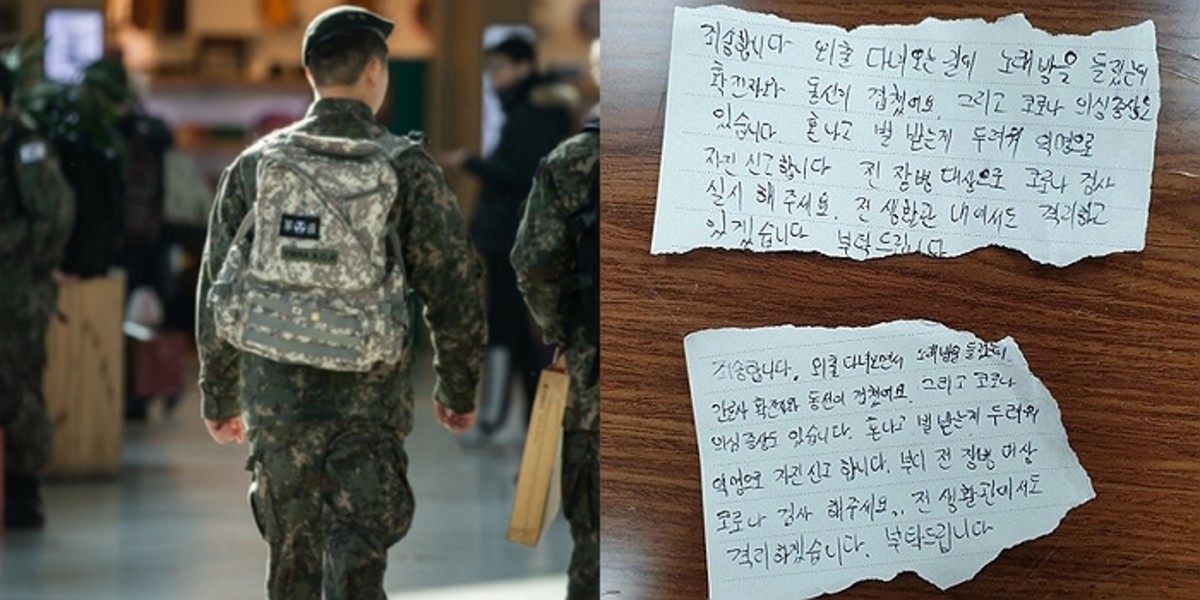 죄송합니다 외출 다녀오는 길에 노래방을 들렸는데
확진자와 동선이 겹쳤어요. 그리고 코로나 의심증상도
있습니다. 혼나고 벌 받는게 두려워 익명으로
자진 신고합니다 전 장병 대상으로 코로나 검사
실시 해 주세요. 전 생활관 내에서도 격리하고
있겠습니다 부탁드립니다
죄송합니다. 외출 다녀오면서 노래방을 들렸는데
간호사 확진자와 동선이 겹쳤어요. 그리고 코로나
의심증상도 있습니다. 혼나고 벌 받는게 두려워
익명으로 자진 신고 합니다. 부디 전 장병 대상
코로나 검사 해주세요.. 전 생활관에서도
격리하겠습니다. 부탁드립니다